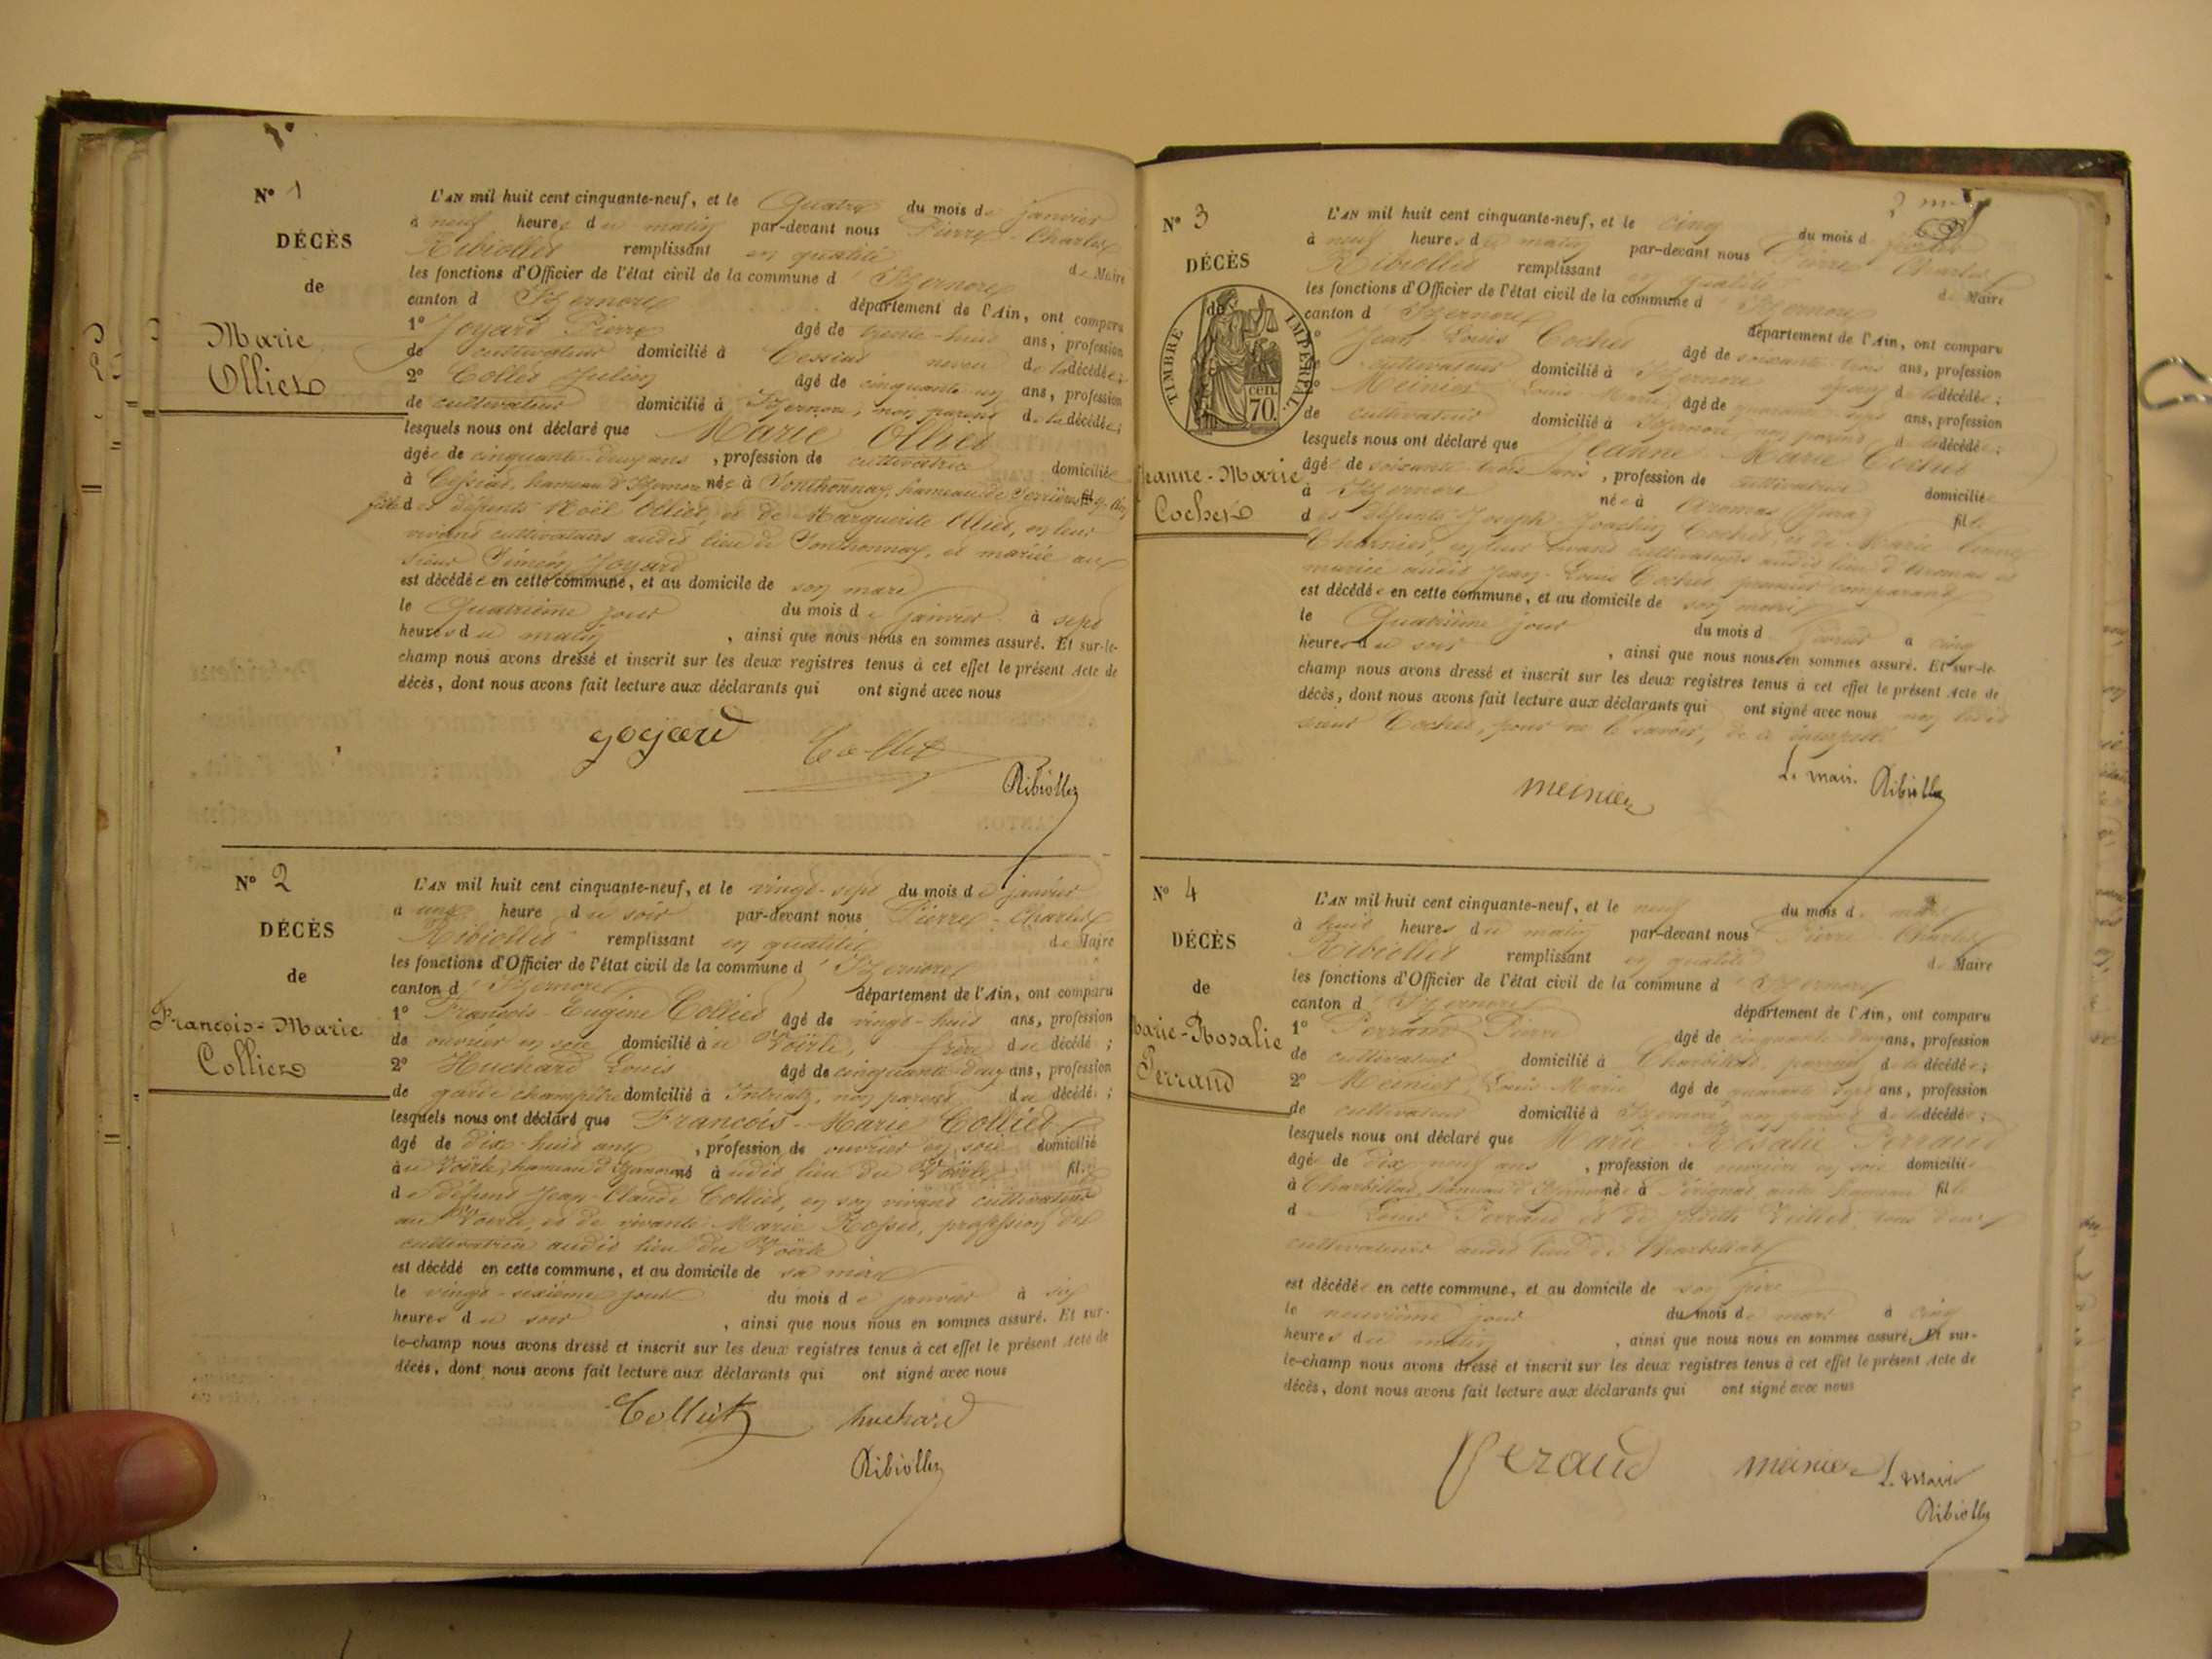 N° 1
DÉCÈS
de
Marie
Ollier
L'AN mil huit cent cinquante-neuf, et le Quatre du mois de janvier
à neuf heures du matin par-devant nous Pierre-Charles
Ribiollet remplissant en qualité de Maire
les fonctions d'Officier de l'état civil de la commune d'Izernore
canton d'Izernore département de l'Ain, ont comparu
1° Joyard Pierre âgé de trente-huit ans, profession
de cultivateur domicilié à Cessiat neveu de la décédée;
2° Collet Julien âgé de cinquante-un ans, profession
de cultivateur domicilié à Izernore, non parent de la décédée;
lesquels nous ont déclaré que Marie Ollier
âgée de cinquante-deux ans, profession de cultivatrice domiciliée
à Cessiat, hameau d'Izernore née à Sonthonnax, hameau de
fille des défunts Noël Ollier, et de Marguerite Ollier, en leur
vivant cultivateurs audit lieu de Sonthonnax, et mariée au
sieur Siméon Joyard
est décédée en cette commune, et au domicile de son mari
le Quatrième jour du mois de janvier à sept
heures du matin, ainsi que nous nous en sommes assuré. Et sur-le-
champ nous avons dressé et inscrit sur les deux registres tenus à cet effet le présent Acte de
décès, dont nous avons fait lecture aux déclarants qui ont signé avec nous
goyard Collet
Ribiollet
N° 2
DÉCÈS
de
Francois-Marie
Collier
L'AN mil huit cent cinquante-neuf, et le vingt-sept du mois de janvier
à une heure du soir par-devant nous Pierre-Charles
Ribiollet remplissant en qualité de Maire
les fonctions d'Officier de l'état civil de la commune d'Izernore
canton d'Izernore département de l'Ain, ont comparu
1° Francois-Eugène Collier âgé de vingt-huit ans, profession
de ouvrier en soie domicilié à u Voërle, frère du décédé;
2° Huchard Louis âgé de cinquante-deux ans, profession
de garde champêtre domicilié à Intriat, non parent du décédé;
lesquels nous ont déclaré que Francois-Marie Collier
âgé de dix-huit ans, profession de ouvrier en soie domicilié
au Voërle, hameau d'Izernore né à udit lieu du Voërle fils
de défunt Jean-Claude Collier, en son vivant cultivateur
au Voërle, et de vivante Marie Rosset, profession de
cultivatrice audit lieu du Voërle
est décédé en cette commune, et au domicile de sa mère
le vingt-sixième jour du mois de janvier à six
heures du soir, ainsi que nous nous en sommes assuré. Et sur-
le-champ nous avons dressé et inscrit sur les deux registres tenus à cet effet le présent Acte de
décès, dont nous avons fait lecture aux déclarants qui ont signé avec nous
huchard
Ribiollet
N° 3
DÉCÈS
de
TIMBRE IMPERIAL
70 cen.
Jeanne-Marie
Cochet
L'AN mil huit cent cinquante-neuf, et le cinq du mois d
à neuf heures du matin par-devant nous Pierre Charles
Ribiollet remplissant en qualité de Maire
les fonctions d'Officier de l'état civil de la commune d'Izernore
canton d'Izernore département de l'Ain, ont comparu
1° Jean-Louis Cochet âgé de soixante-trois ans, profession
cultivateur domicilié à Izernore époux de la décédée;
2° Meinier Louis-Marie âgé de quarante-sept ans, profession
de cultivateur domicilié à Izernore non parent de la décédée;
lesquels nous ont déclaré que Jeanne-Marie Cochet
âgée de soixante trois ans, profession de cultivatrice domiciliée
à Izernore née à Aromas (Jura) fille
des défunts Joseph-Joachim Cochet, et de Marie
Charnier, en leur vivant cultivateurs audit lieu d'Aromas et
mariée audit Jean-Louis Cochet premier comparant
est décédée en cette commune, et au domicile de son mari
le Quatrième jour du mois d février à cinq
heures du soir, ainsi que nous nous en sommes assuré. Et sur-le-
champ nous avons dressé et inscrit sur les deux registres tenus à cet effet le présent Acte de
décès, dont nous avons fait lecture aux déclarants qui ont signé avec nous non ledit
sieur Cochet, pour ne le savoir, de ce interpellé
meinier L. mair. Ribiollet
N° 4
DÉCÈS
de
Marie-Rosalie
Perraud
L'AN mil huit cent cinquante-neuf, et le neuf du mois de mars
à huit heures du matin par-devant nous Pierre Charles
Ribiollet remplissant en qualité de Maire
les fonctions d'Officier de l'état civil de la commune d'Izernore
canton d'Izernore département de l'Ain, ont comparu
1° Perraud Pierre âgé de cinquante-deux ans, profession
de cultivateur domicilié à Charbillat, parent de la décédée;
2° Meinier, Louis-Marie âgé de quarante-sept ans, profession
de cultivateur domicilié à Izernore non parent de la décédée;
lesquels nous ont déclaré que Marie-Rosalie Perraud
âgée de dix neuf ans, profession de ouvrière en soie domiciliée
à Charbillat, hameau d'Izernore née à Pérignat, autre hameau fille
de Louis Perraud et de Judith Veillet, tous deux
cultivateurs audit lieu de Charbillat
est décédée en cette commune, et au domicile de son père
le neuvième jour du mois de mars à cinq
heures du matin, ainsi que nous nous en sommes assuré. Et sur-
le-champ nous avons dressé et inscrit sur les deux registres tenus à cet effet le présent Acte de
décès, dont nous avons fait lecture aux déclarants qui ont signé avec nous
Peraud meinier L. mair
Ribiollet